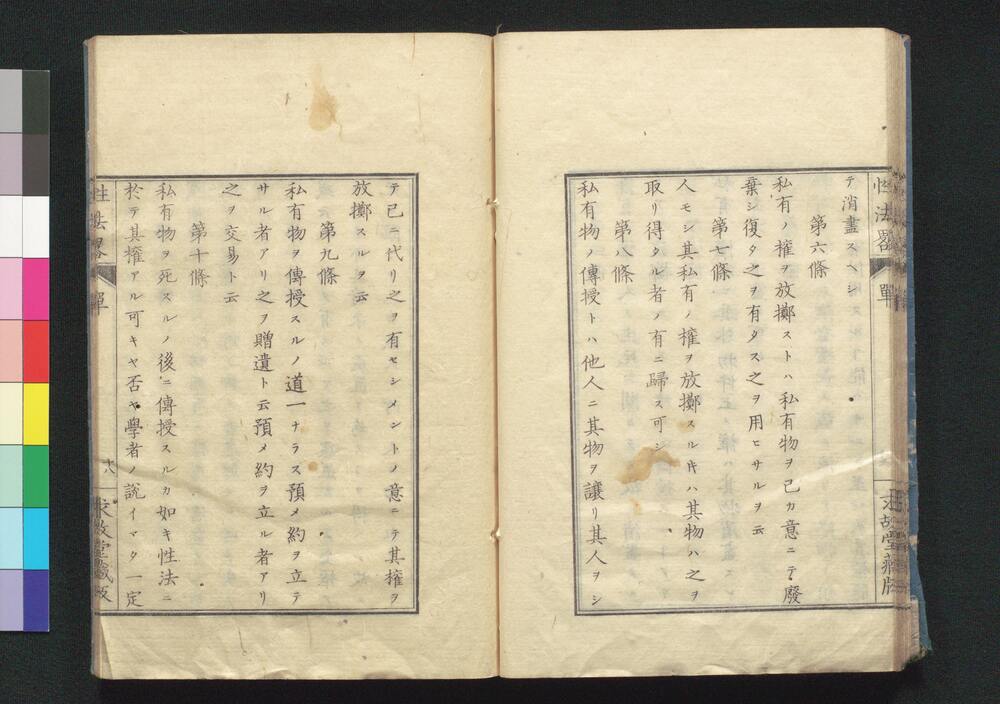 性法畧
單
求故堂藏版
テ消盡スヘシ
第六條
私有ノ權ヲ放擲ストハ私有物ヲ己カ意ニテ廢
棄シ復タ之ヲ有タス之ヲ用ヒサルヲ云
第七條
人モシ其私有ノ權ヲ放擲スル𪜈ハ其物ハ之ヲ
取リ得タル者ノ有ニ歸ス可シ
第八條
私有物ノ傳授トハ他人ニ其物ヲ讓リ其人ヲシ
テ己ニ代リ之ヲ有セシメントノ意ニテ其權ヲ
放擲スルヲ云
第九條
私有物ヲ傳授スルノ道一ナラス預メ約ヲ立テ
サル者アリ之ヲ贈遺ト云預メ約ヲ立ル者アリ
之ヲ交易ト云
第十條
私有物ヲ死スルノ後ニ傳授スルカ如キ性法ニ
於テ其權アル可キヤ否ヤ學者ノ說イマタ一定
性法畧
單
十八
求故堂藏版